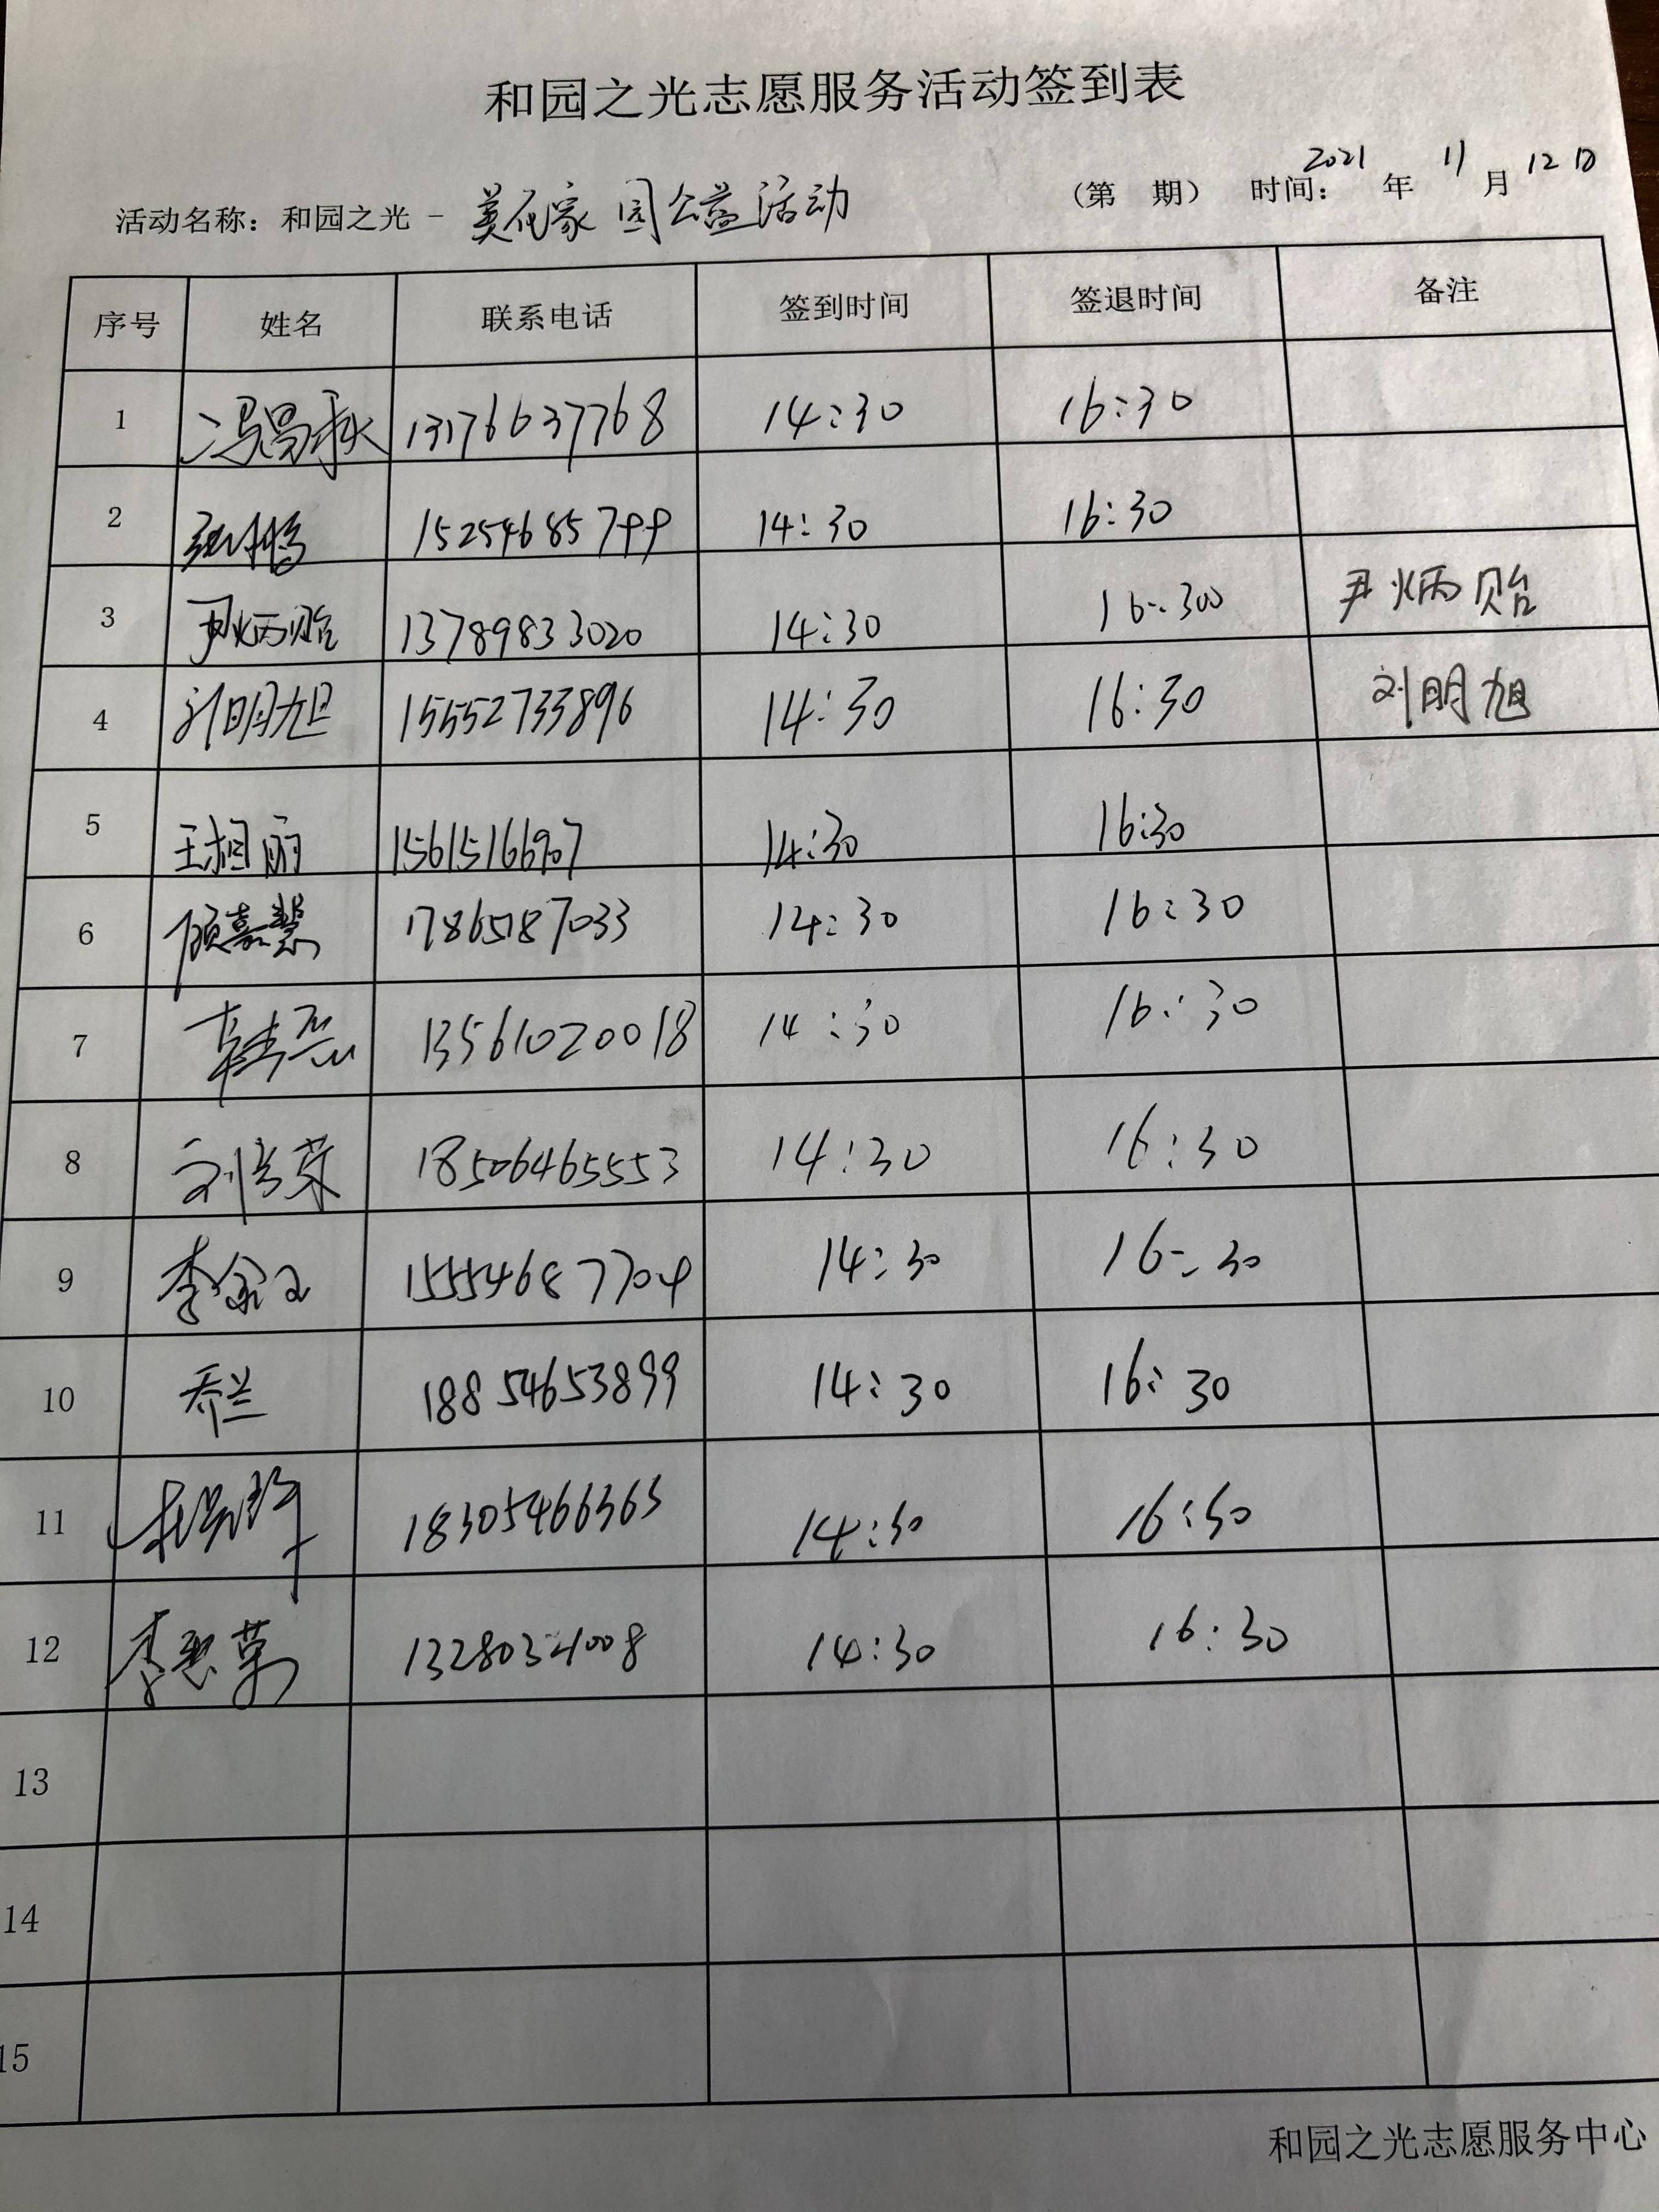 和园之光志愿服务活动签到表
活动名称：和园之光 - 美在家园公益活动 （第 期） 时间：2021 年 11 月 12 日
序号 姓名 联系电话 签到时间 签退时间 备注
1 冯昌秋 13176637768 14:30 16:30
2 15254685799 14:30 16:30
3 尹炳贻 13789833020 14:30 16:300 尹炳贻
4 刘明旭 15552733896 14:30 16:30 刘明旭
5 王相丽 15615166907 14:30 16:30
6 顾嘉慧 17865187033 14:30 16:30
7 13561020018 14:30 16:30
8 刘芳荣 18506465553 14:30 16:30
9 李金文 15554687704 14:30 16:30
10 乔兰 18854653899 14:30 16:30
11 18305466363 14:30 16:30
12 李惠菊 14:30 16:30
13
14
15
和园之光志愿服务中心